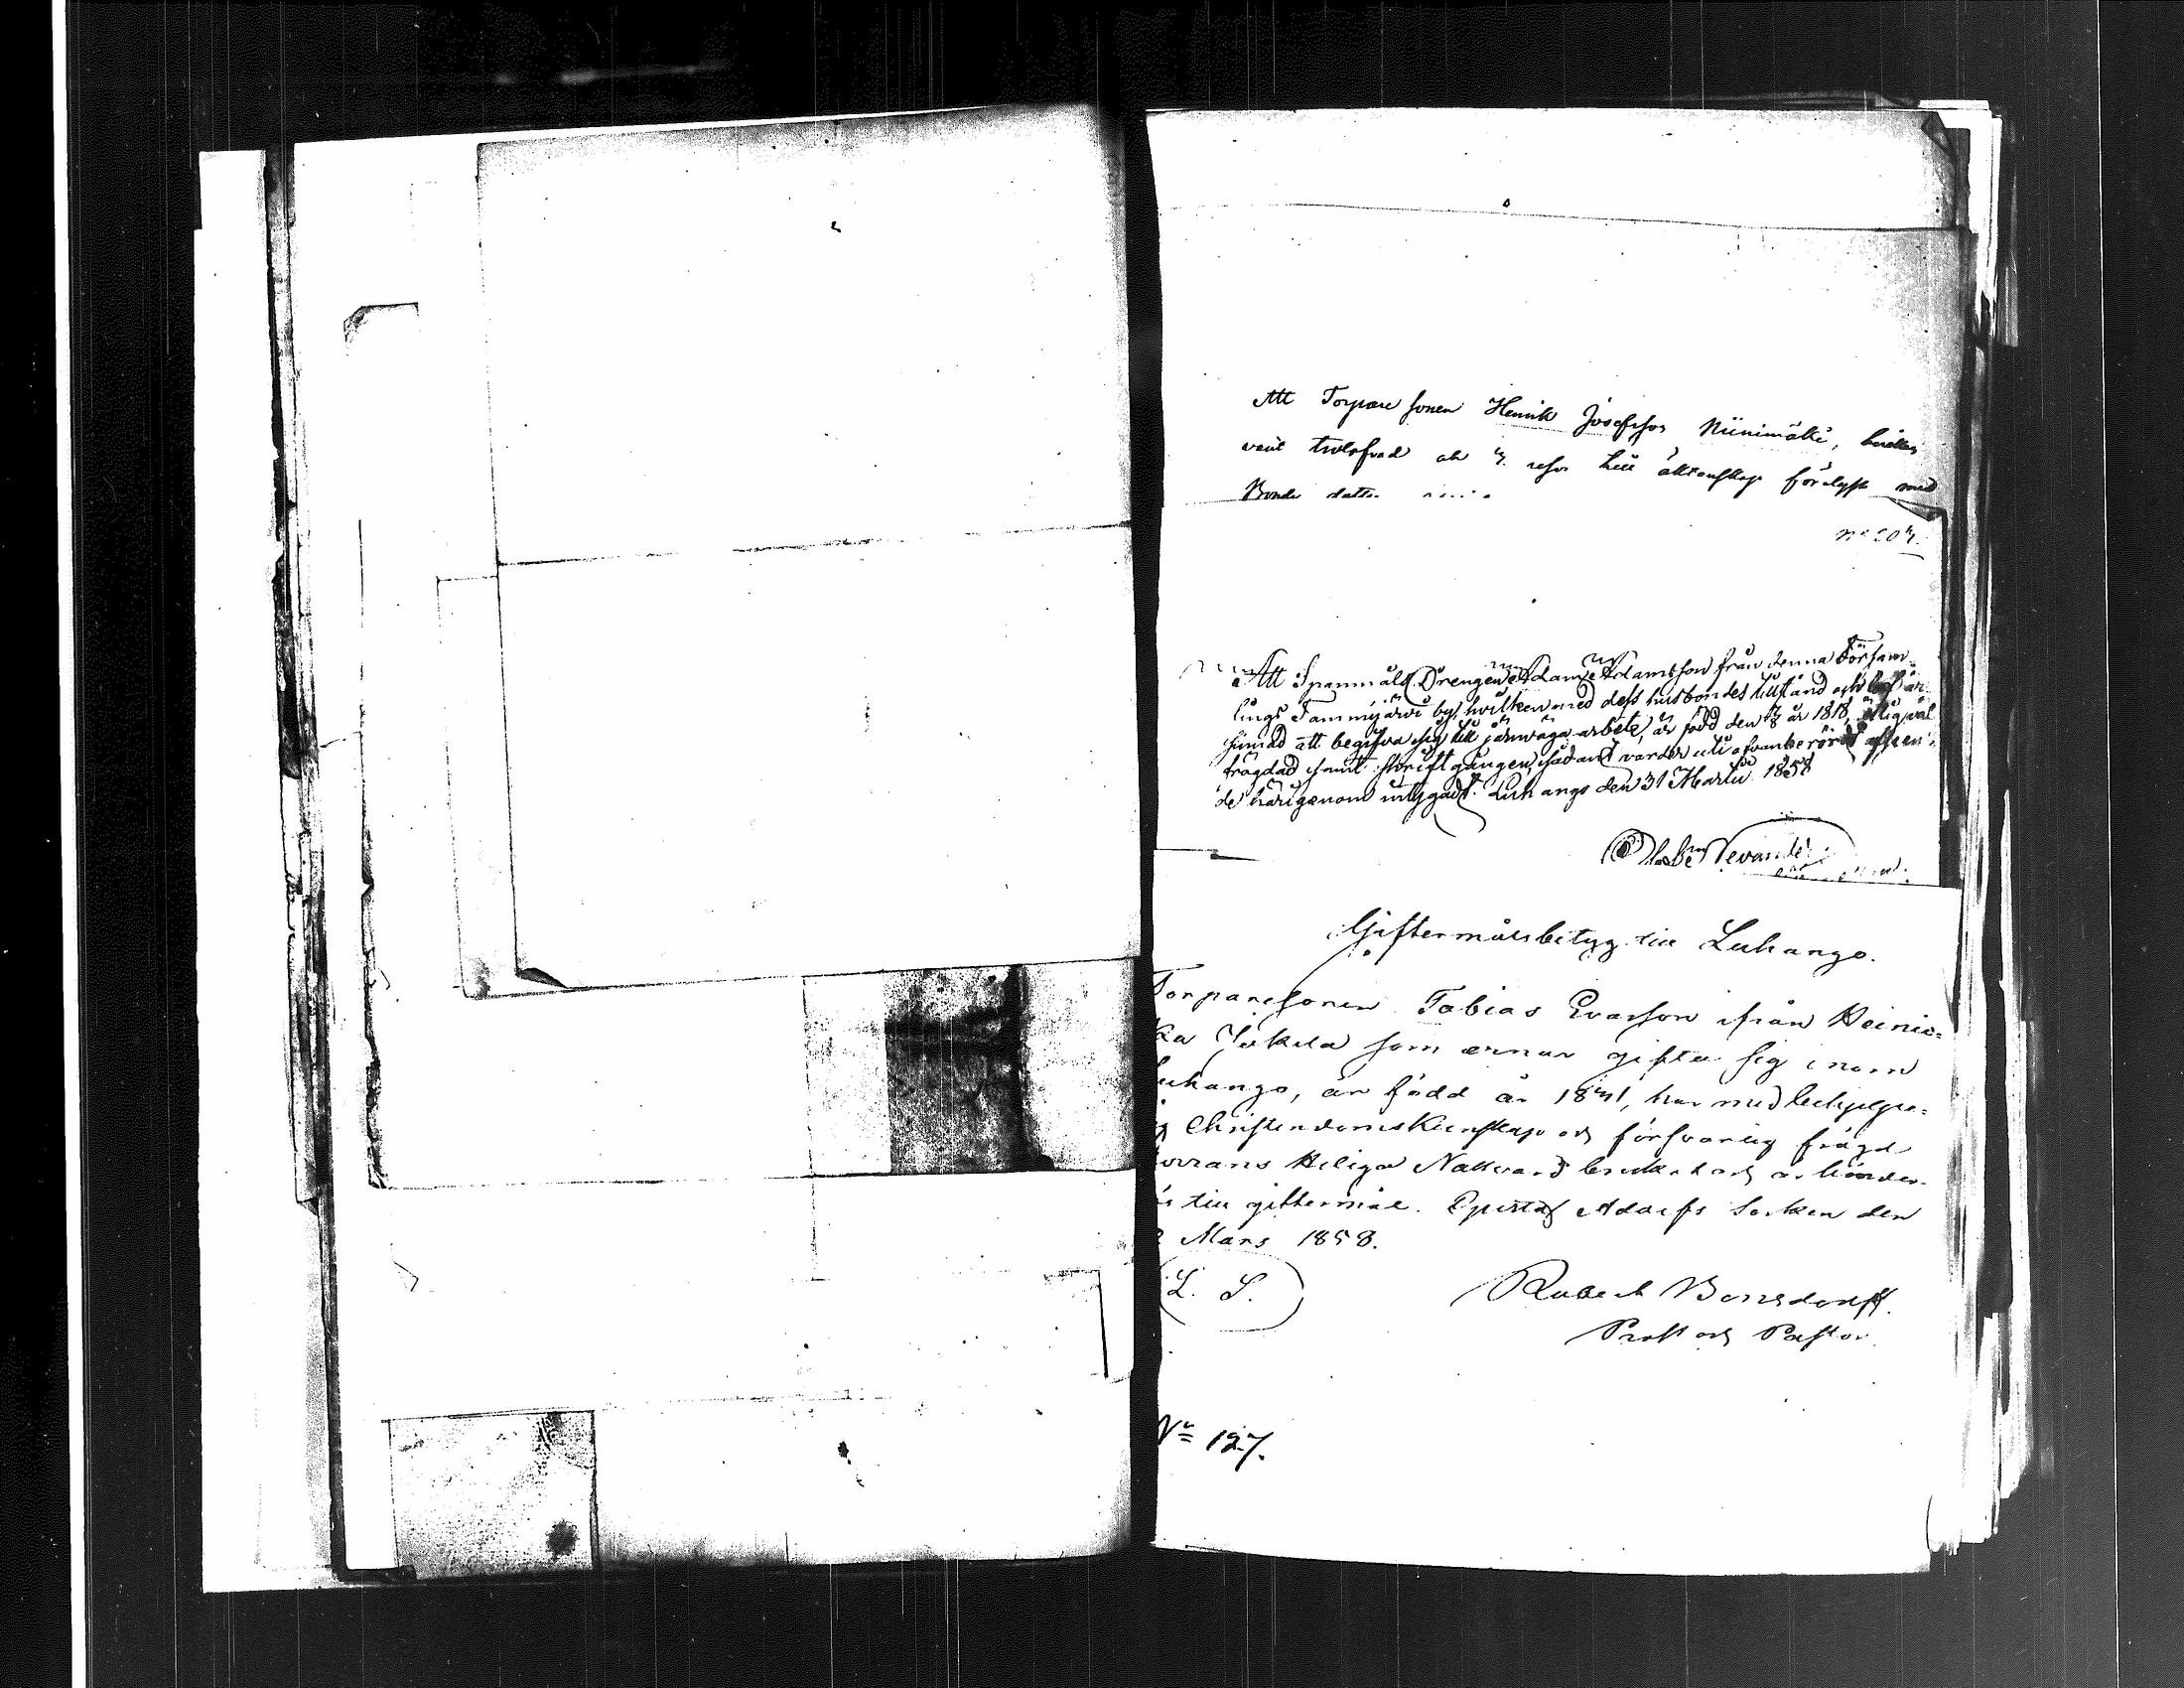 Att Torpare sonen Henrik Josefsson Niinimäki, hvilken
varit trolofvad och 3. resor till äktenskap förelyst med
Bonde dotter
No 204.
Att Spannmåls Drengen Adam Adamsson från denna Försam-
lings Tammijärvi by, hvilken med dess husbondes tillstånd och är
sinnad att begifva sig till järnvägs-arbete, är född den år 1818, väl
frägdad samt skriftgången, sådant varder uti ofvanberörde afseen-
de härigenom intygadt. Luhango den 31 Martii 1858
Giftermålsbetyg till Luhango.
Torparesonen Tobias Evasson ifrån Heinis-
ka Jukela som ernar gifta sig inom
Luhango, är född år 1841, har med behjelpe-
lig Christendomskunskap och försvarlig frägd
Herrans Heliga Nattvard brukat och är hinder-
lös till giftermål. Gustaf Adolfs Socken den
Mars 1858.
L. S.
Robert Bonsdorff.
Prost och Pastor.
No 127.